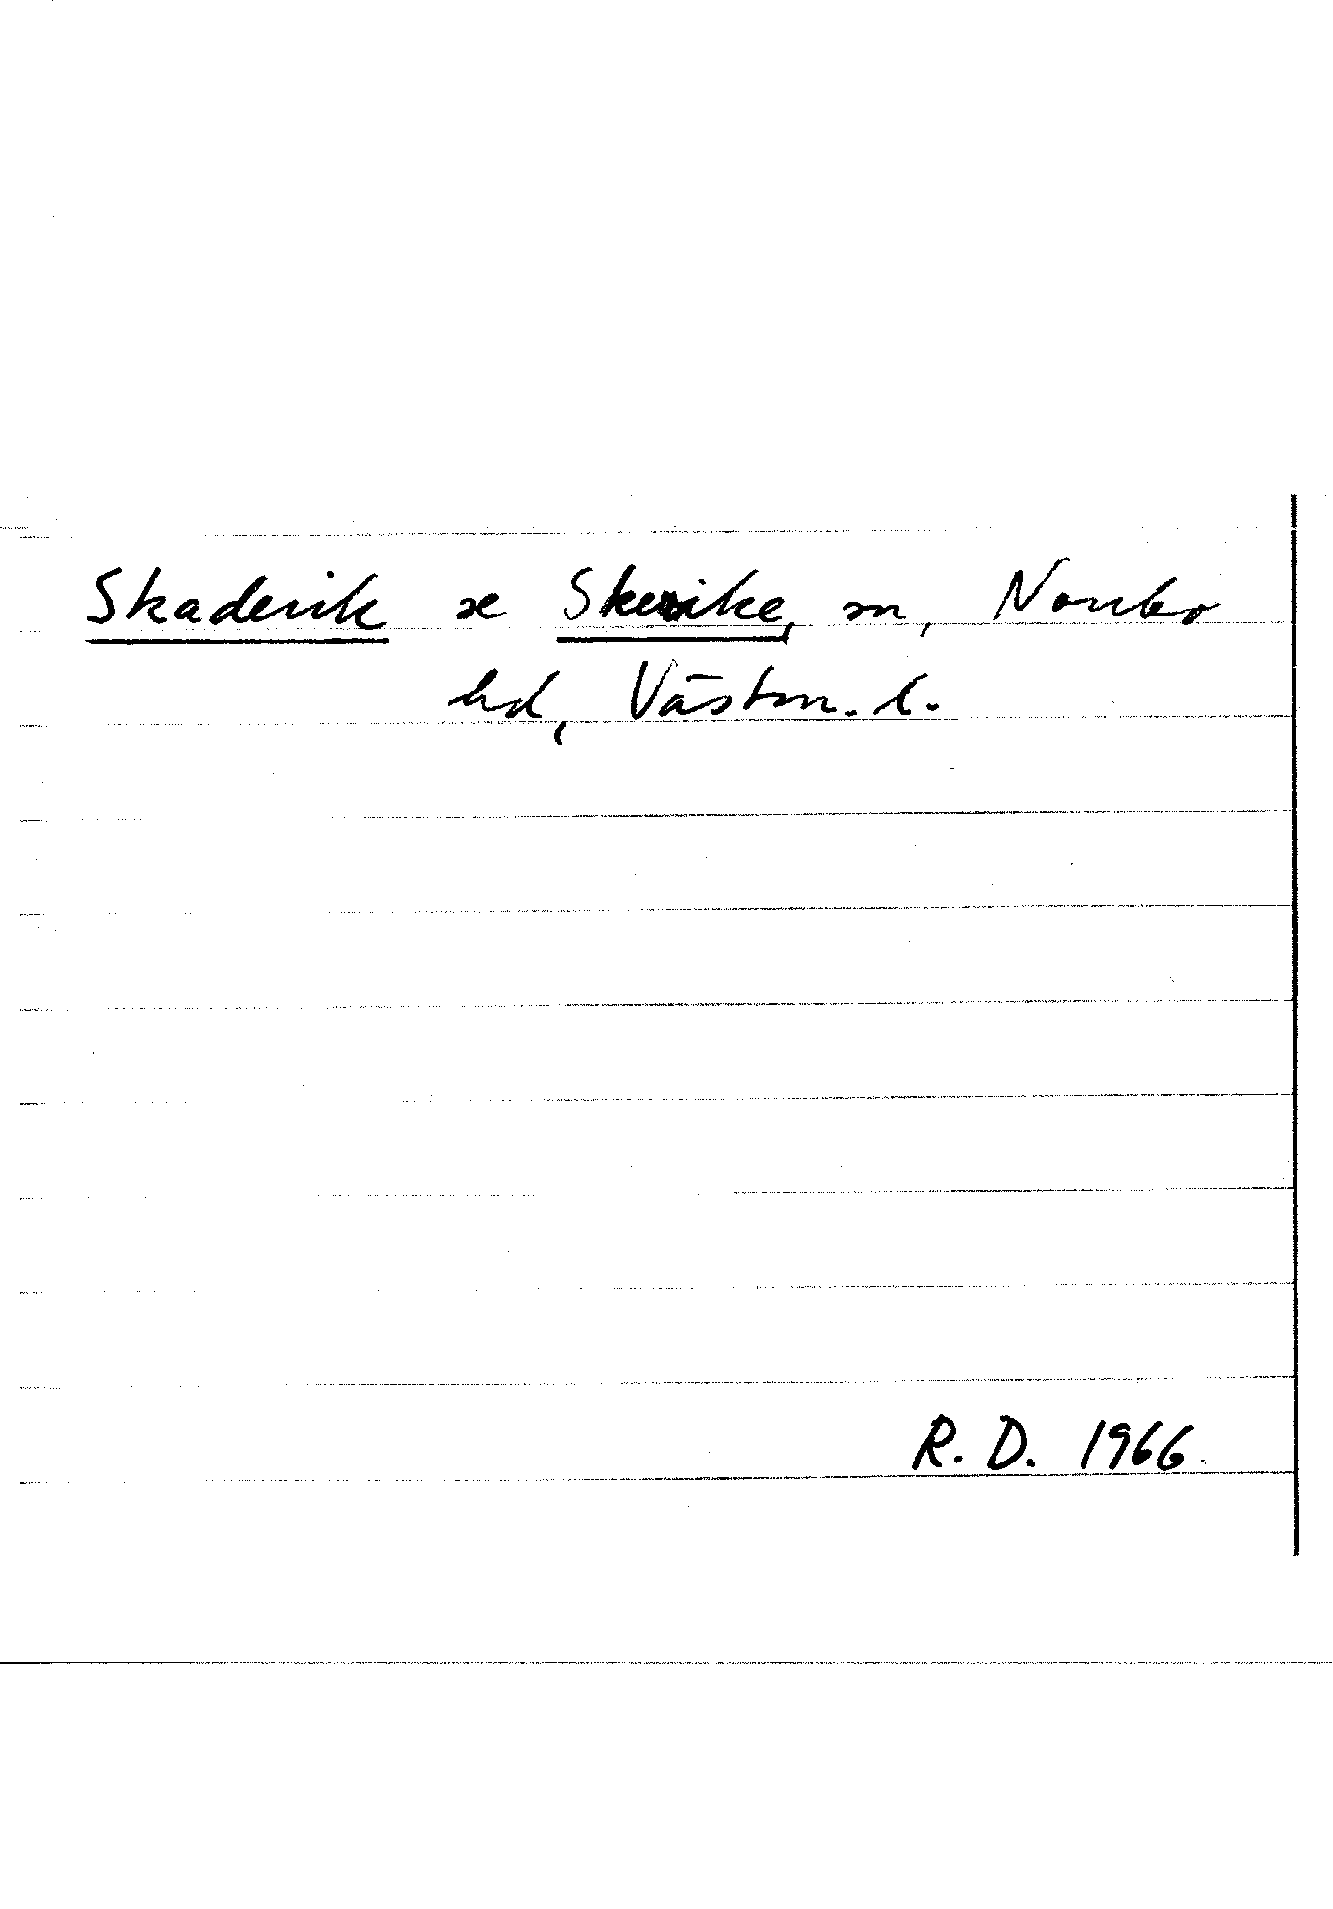 Skaderik se Skerike, sn, Norrbo
hd, Västm. l.
R. D. 1966.